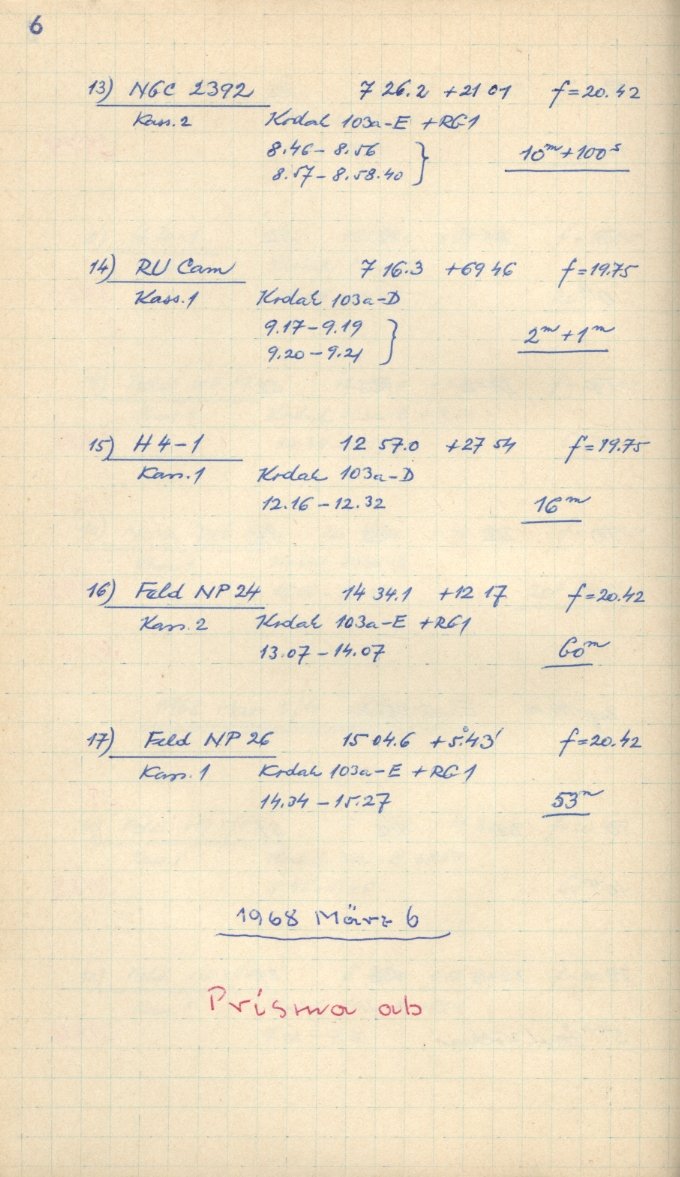 6
13) NGC 2392 7 26.2 +21 01 f=20.42
Kass.2 Kodak 103a-E +RG1
8.46–8.56
8.57–8.58.40 } 10ᵐ+100ˢ
14) RU Cam 7 16.3 +69 46 f=19.75
Kass.1 Kodak 103a-D
9.17–9.19
9.20–9.21 } 2ᵐ+1ᵐ
15) H4-1 12 57.0 +27 54 f=19.75
Kass.1 Kodak 103a-D
12.16–12.32 16ᵐ
16) Feld NP 24 14 34.1 +12 17 f=20.42
Kass.2 Kodak 103a-E +RG1
13.07–14.07 60ᵐ
17) Feld NP 26 15 04.6 +5°43' f=20.42
Kass.1 Kodak 103a-E +RG1
14.34–15.27 53ᵐ
1968 März 6
Prisma ab